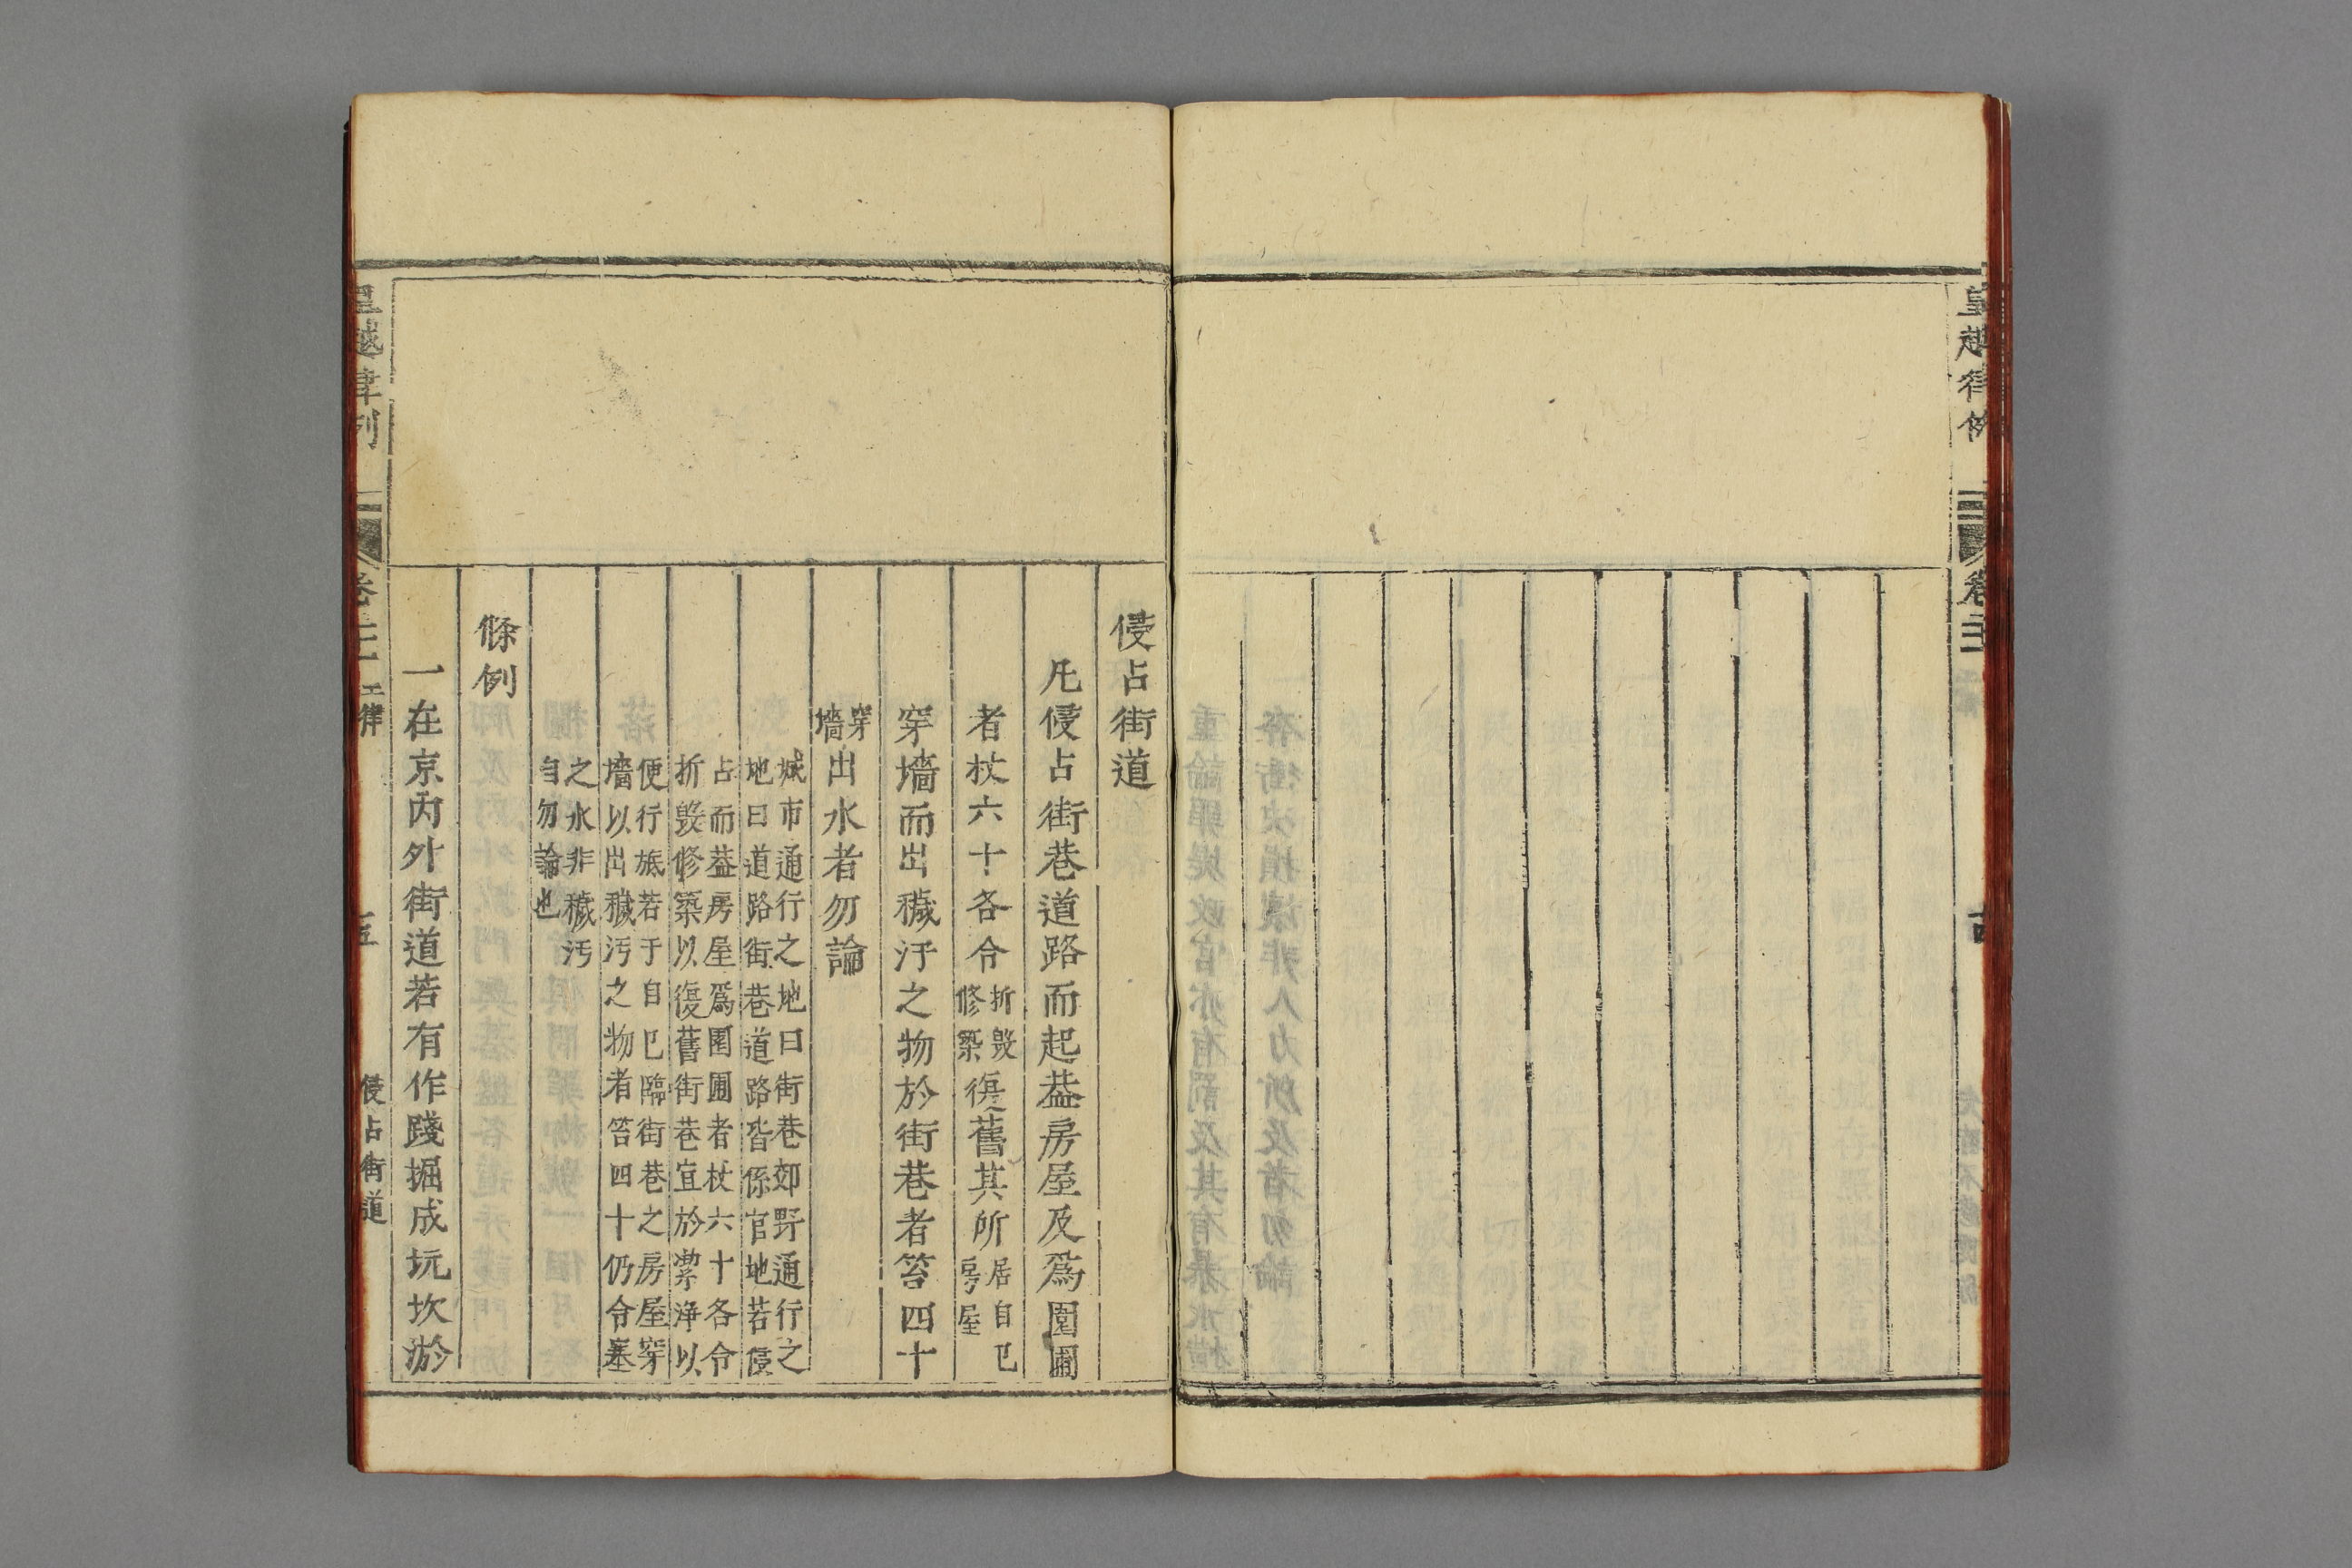 皇越律例
卷二十一
十四
侵占街道
凡侵占街巷道路而起葢房屋及爲園圃
者杖六十各令折毀修築復舊其所居自己房屋
穿墻而出穢汙之物於街巷者笞四十
穿墻出水者勿論
城市通行之地曰街巷郊野通行之
地曰道路街巷道路皆係官地若侵
占而葢房屋爲園圃者杖六十各令
折毀修築以復舊街巷宜於潔淨以
便行旅若于自己臨街巷之房屋穿
墻以出穢污之物者笞四十仍令塞
之水非穢污
自勿論也
條例
一在京內外街道若有作踐掘成坑坎淤
皇越律例
卷二十一
工律
十五
侵占街道